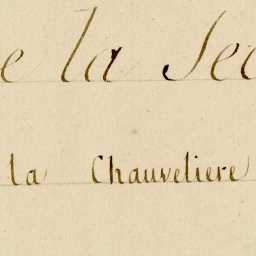 e la Sec
la Chauveliere